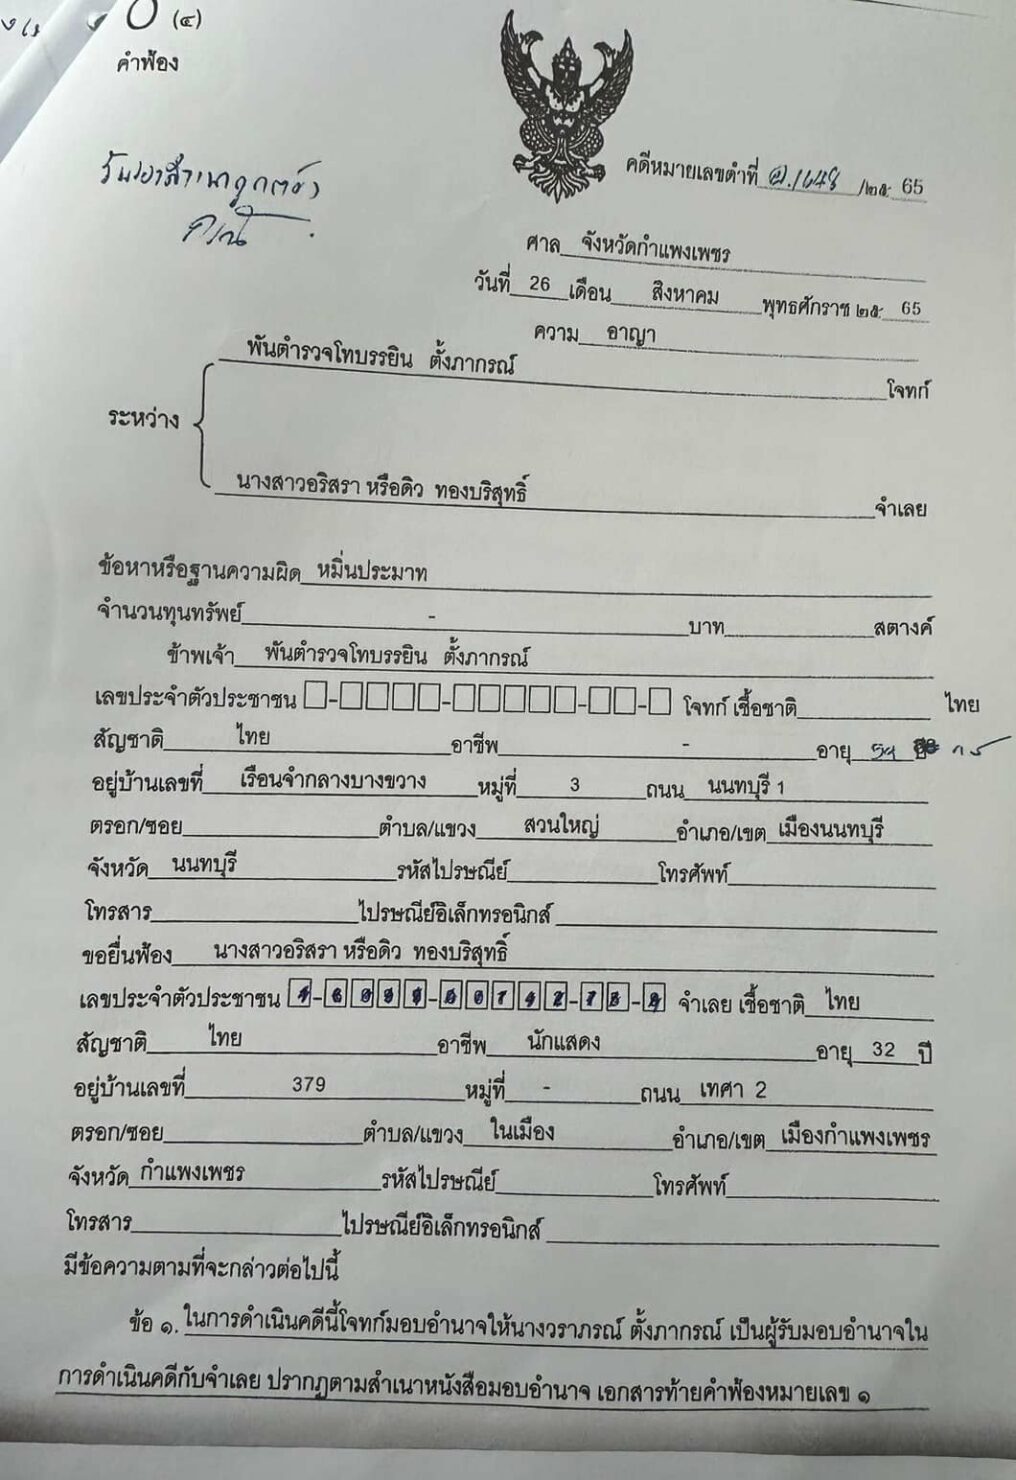 (๔)
คำฟ้อง
รับรองสำเนาถูกต้อง
คดีหมายเลขดำที่ อ.1648 /๒๕ 65
ศาล จังหวัดกำแพงเพชร
วันที่ 26 เดือน สิงหาคม พุทธศักราช ๒๕ 65
ความ อาญา
พันตำรวจโทบรรยิน ตั้งภากรณ์ โจทก์
ระหว่าง
นางสาวอริสรา หรือดิว ทองบริสุทธิ์ จำเลย
ข้อหาหรือฐานความผิด หมิ่นประมาท
จำนวนทุนทรัพย์ - บาท สตางค์
ข้าพเจ้า พันตำรวจโทบรรยิน ตั้งภากรณ์
เลขประจำตัวประชาชน โจทก์ เชื้อชาติ ไทย
สัญชาติ ไทย อาชีพ - อายุ ปี
อยู่บ้านเลขที่ เรือนจำกลางบางขวาง หมู่ที่ 3 ถนน นนทบุรี 1
ตรอก/ซอย ตำบล/แขวง สวนใหญ่ อำเภอ/เขต เมืองนนทบุรี
จังหวัด นนทบุรี รหัสไปรษณีย์ โทรศัพท์
โทรสาร ไปรษณีย์อิเล็กทรอนิกส์
ขอยื่นฟ้อง นางสาวอริสรา หรือดิว ทองบริสุทธิ์
เลขประจำตัวประชาชน จำเลย เชื้อชาติ ไทย
สัญชาติ ไทย อาชีพ นักแสดง อายุ 32 ปี
อยู่บ้านเลขที่ 379 หมู่ที่ - ถนน เทศา 2
ตรอก/ซอย ตำบล/แขวง ในเมือง อำเภอ/เขต เมืองกำแพงเพชร
จังหวัด กำแพงเพชร รหัสไปรษณีย์ โทรศัพท์
โทรสาร ไปรษณีย์อิเล็กทรอนิกส์
มีข้อความตามที่จะกล่าวต่อไปนี้
ข้อ ๑. ในการดำเนินคดีนี้โจทก์มอบอำนาจให้นางวราภรณ์ ตั้งภากรณ์ เป็นผู้รับมอบอำนาจใน
การดำเนินคดีกับจำเลย ปรากฏตามสำเนาหนังสือมอบอำนาจ เอกสารท้ายคำฟ้องหมายเลข ๑